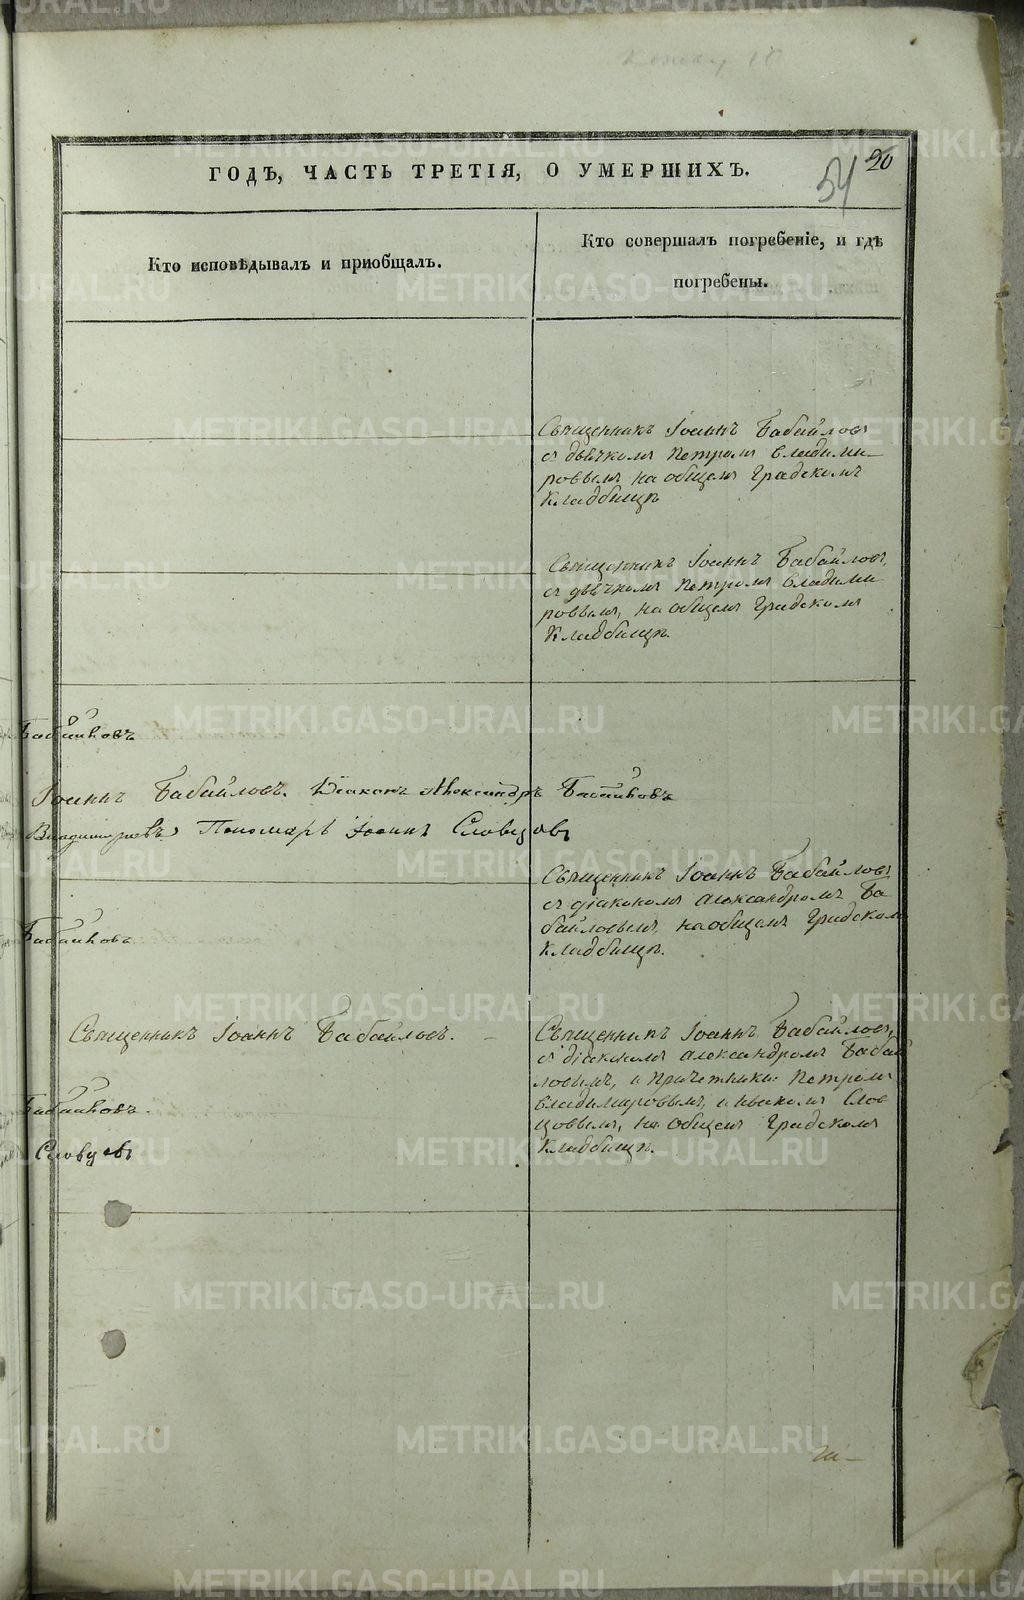 ГОДЪ, ЧАСТЬ ТРЕТІЯ, О УМЕРШИХЪ.
54 20
Кто исповѣдывалъ и приобщалъ.
Кто совершалъ погребеніе, и гдѣ
погребены.
Священникъ Іоаннъ Бабайловъ
съ дьячкомъ Петромъ Владими-
ровымъ на общемъ Градскомъ
Кладбищѣ
Священникъ Іоаннъ Бабайловъ,
съ дьячкомъ Петромъ Владими
ровымъ, на общемъ Градскомъ
Кладбищѣ.
Іоаннъ Бабайловъ. Діаконъ Александръ
Пономарь Іоаннъ Словцовъ
Священникъ Іоаннъ Бабайловъ
съ діакономъ Александромъ Ба
байловымъ, на общемъ Градскомъ
Кладбищѣ.
Священникъ Іоаннъ Бабайловъ.
Священникъ Іоаннъ Бабайловъ,
съ діакономъ Александромъ Бабай
ловымъ, и причетники: Петромъ
Владимировымъ, и Слов
цовымъ, на общемъ Градскомъ
Кладбищѣ.
Словцовъ
METRIKI.GASO-URAL.RU